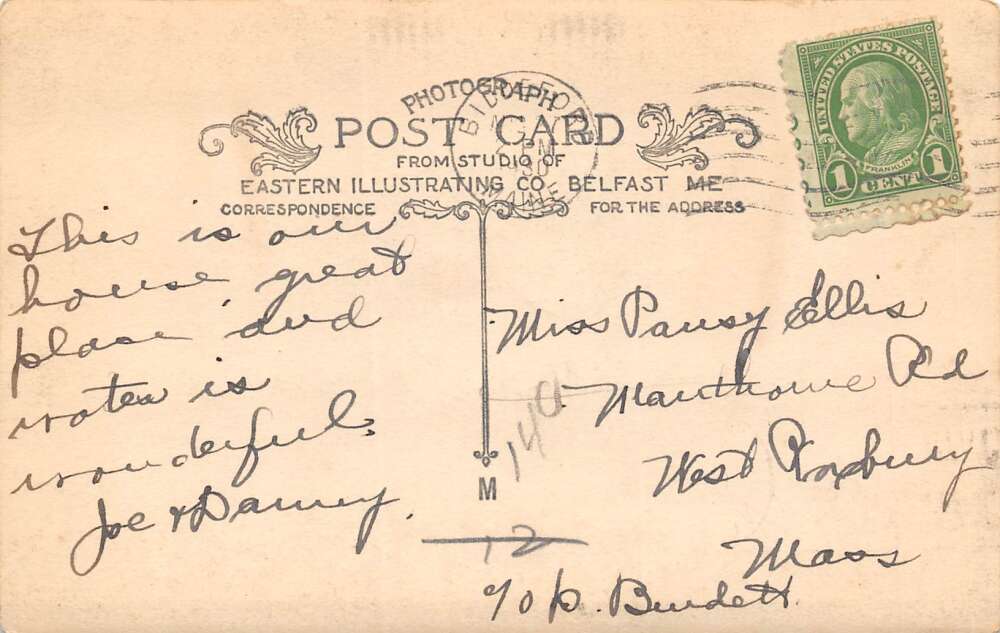 PHOTOGRAPH
POST CARD
FROM STUDIO OF
EASTERN ILLUSTRATING CO BELFAST ME
CORRESPONDENCE
FOR THE ADDRESS
BIDDEFORD
PM
MAINE
UNITED STATES POSTAGE
FRANKLIN
1 CENT 1
This is our
house great
place and
water is
wonderful.
Joe &
M
140
12
Miss Pansy Ellis
Rd
West Roxbury
Mass
c/o P. Burdett